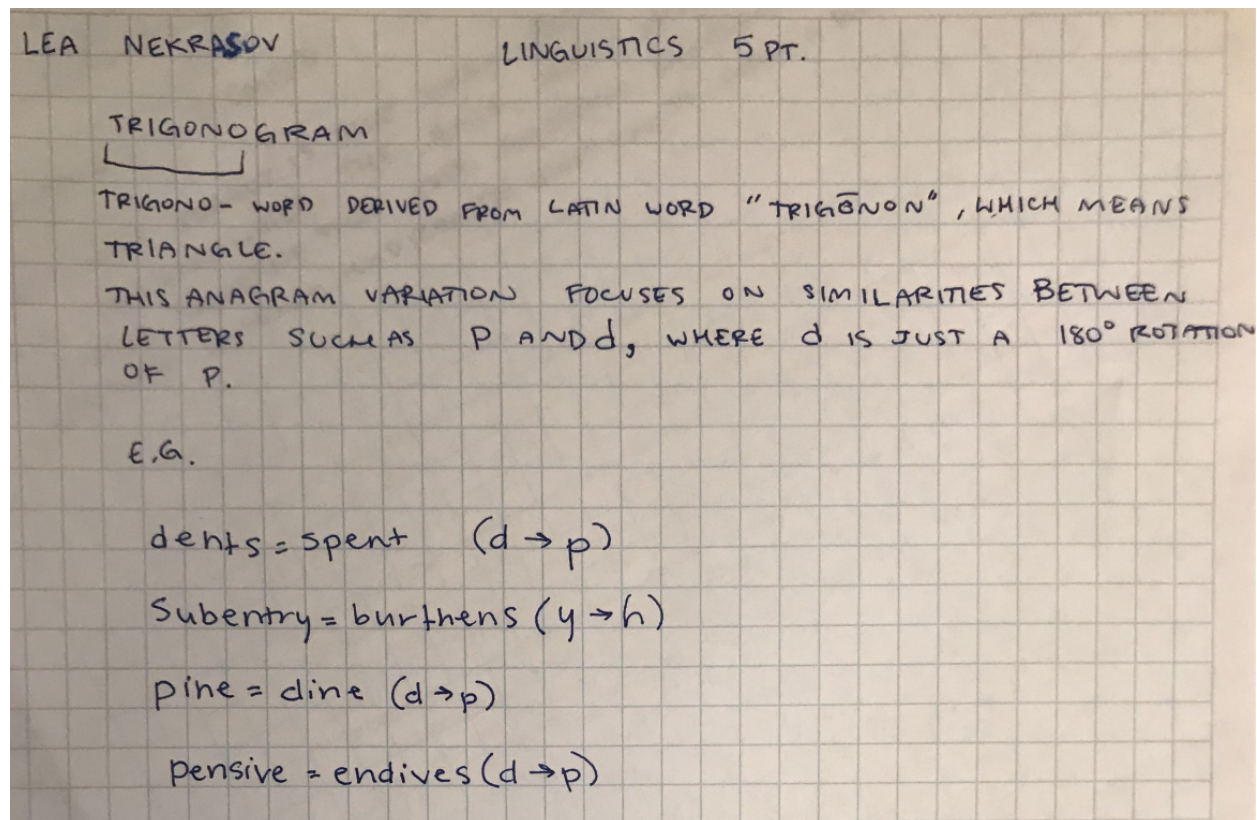 LEA NEKRASOV LINGUISTICS 5 PT.
TRIGONOGRAM
TRIGONO- WORD DERIVED FROM LATIN WORD "TRIGŌNON", WHICH MEANS
TRIANGLE.
THIS ANAGRAM VARIATION FOCUSES ON SIMILARITIES BETWEEN
LETTERS SUCH AS P AND d, WHERE d IS JUST A 180° ROTATION
OF P.
E.G.
dents = spent (d → p)
Subentry = burthens (y → h)
pine = dine (d → p)
pensive = endives (d → p)